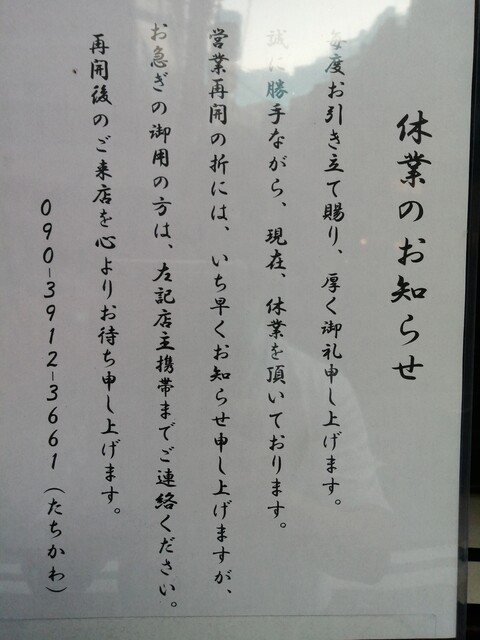 休業のお知らせ
毎度お引き立て賜り、厚く御礼申し上げます。
誠に勝手ながら、現在、休業を頂いております。
営業再開の折には、いち早くお知らせ申し上げますが、
お急ぎの御用の方は、左記店主携帯までご連絡ください。
再開後のご来店を心よりお待ち申し上げます。
090-3912-3661(たちかわ)